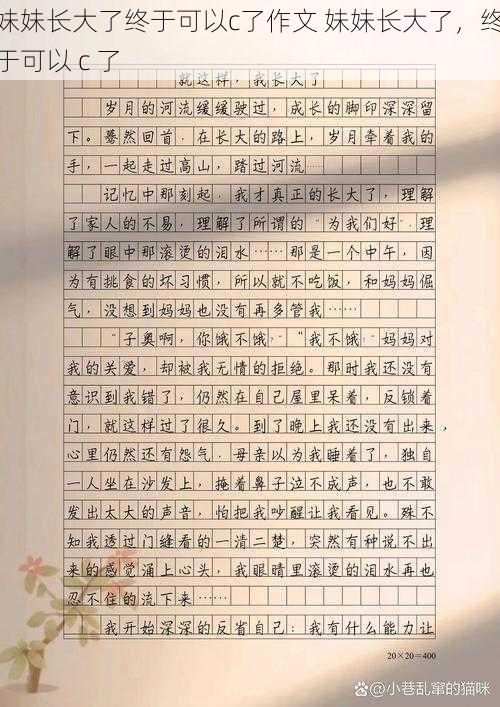 妹妹长大了终于可以c了作文 妹妹长大了，终
于可以 c 了
就这样，我长大了
岁月的河流缓缓驶过，成长的脚印深深留
下。蓦然回首，在长大的路上，岁月牵着我的
手，一起走过高山，踏过河流……
记忆中那刻起，我才真正的长大了，理解
了家人的不易，理解了所谓的“为我们好”，理
解了眼中那滚烫的泪水……那是一个中午，因
为有挑食的坏习惯，所以就不吃饭，和妈妈倔
气，没想到妈妈也没有再多管我……
“子奥啊，你饿不饿？”“我不饿”妈妈对
我的关爱，却被我无情的拒绝。那时我还没有
意识到我错了，仍然在自己屋里呆着，反锁着
门，就这样过了很久。到了晚上我还没有出来，
心里仍然还有怨气。母亲以为我睡着了，独自
一人坐在沙发上，掩着鼻子泣不成声，也不敢
发出太大的声音，怕把我吵醒让我看见。殊不
知我透过门缝看的一清二楚，突然有种说不出
来的感觉涌上心头，我眼睛里滚烫的泪水再也
忍不住的流下来……
我开始深深的反省自己：我有什么能力让
20×20=400
@小巷乱窜的猫咪